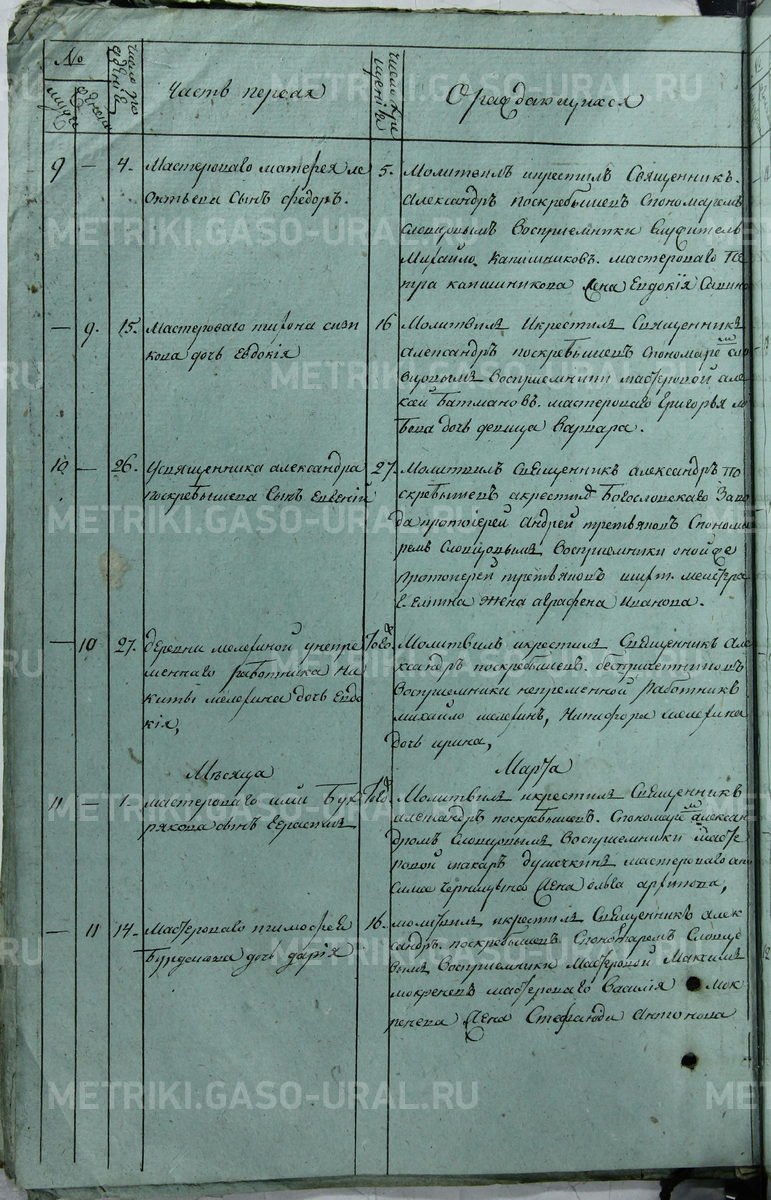 №
муж
женск
число рождения
Часть первая
число крещения
О раждающихся
9 — 4. Мастероваго матфея ле
онтьева Сынъ федоръ.
5. Молитвилъ икрестилъ Священникъ.
Александръ поскребышевъ Спономаремъ
Словцовымъ Восприемники Служитель
Михайло Капишниковъ. мастероваго Пе
тра капишникова жена Евдокія Савина
— 9. 15. Мастероваго тихона
кова дочь Евдокія
16 Молитвилъ Икрестилъ Священникъ
александръ поскребышевъ Спономаремъ сло
вцовымъ Восприемники мастеровой алек
сей Батмановъ. мастероваго Григорья
бова дочь девица Варвара.
10 — 26. Усвященника александра
поскребышева Сынъ Евгеній
27. Молитвилъ Священникъ александръ по
скребышевъ акрестилъ Богословскаго Заво
да протоіерей Андрей третьяковъ Спонома
ремъ Словцовымъ Восприемники онойже
протоиерей третьяковъ шихт. мейстера
жена аграфена Иванова.
— 10 27. деревни мелехиной унепре
меннаго работника Ни
киты мелехина дочь Евдо
кія,
Тогож. Молитвилъ икрестилъ Священникъ Але
ксандръ поскребышевъ. беспричетниковъ
Восприемники непременной Работникъ
михайло мелехинъ, Никифора мелехина
дочь ирина,
Мѣсяца
Марта
11 — 1. мастероваго ильи Бух
рякова сынъ Герасимъ
Тогож Молитвилъ икрестилъ Священникъ
александръ поскребышевъ. Спономаремъ алексан
дромъ Словцовымъ Восприемники Масте
ровой макаръ душечкинъ мастероваго ани
сима жена ольга архипова,
— 11 14. Мастероваго тимофея
дочь дарія
16. молитвилъ икрестилъ Священникъ алек
сандръ. поскребышевъ Спономаремъ Словцо
вымъ Восприемники Мастеровой Максимъ
мокреневъ мастероваго Василія Мок
ренева жена Антонова
METRIKI.GASO-URAL.RU